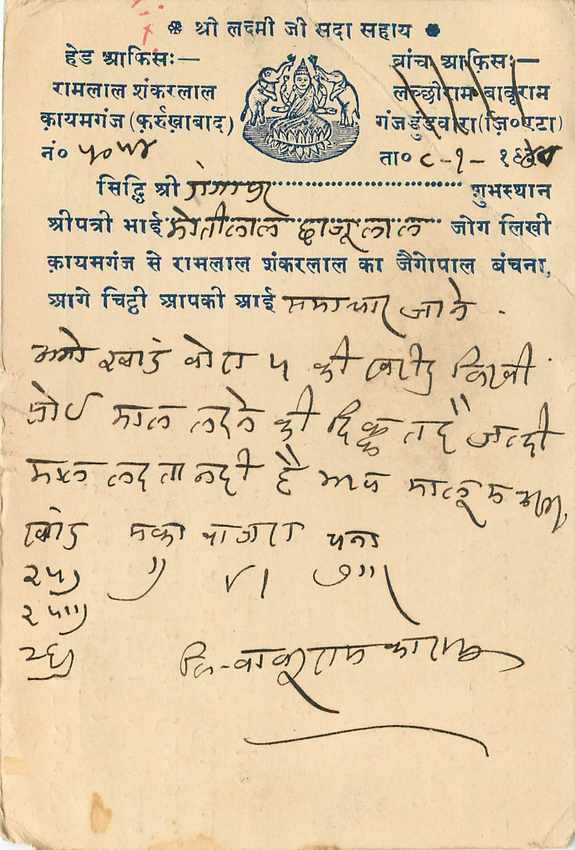 श्री लक्ष्मी जी सदा सहाय
हेड आफिसः—
रामलाल शंकरलाल
क़ायमगंज (फ़र्रुख़ाबाद)
नं० ५०५४
ब्रांच आफ़िसः—
लच्छीराम बाबूराम
गंजडुंडवारा (ज़ि०एटा)
ता० ८-१-
सिद्धि श्री गंगापुर शुभस्थान
श्रीपत्री भाई मोतीलाल छाजूलाल जोग लिखी
क़ायमगंज से रामलाल शंकरलाल का जैगोपाल बंचना,
आगे चिट्ठी आपकी आई समाचार जाने .
खांड बोरा ५ की खरीद
माल लदने की दिक्कत है जल्दी
माल लदता नही है मालूम
खांड मका बाजरा चना
२५)
२५॥)
२६)